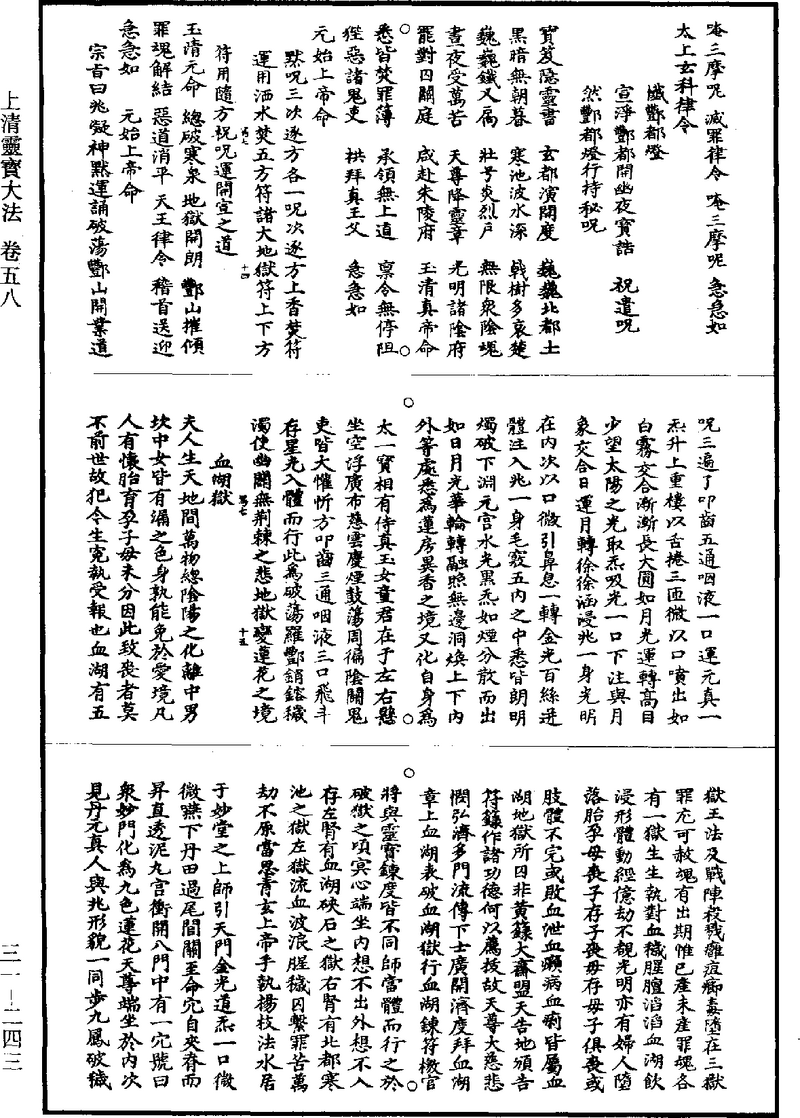 唵三摩呢 滅罪律令 唵三摩呢 急急如
太上玄科律令
懺酆都燈
宣淨酆都開幽夜寶誥 祝遣呪
然酆都燈行持秘呪
寶笈隱靈書 玄都演開度 巍巍北都土
黑暗無朝暮 寒池波水深 戟樹多哀楚
巍巍鐵叉扃 壯号炎烈戶 無限衆陰魂
晝夜受萬苦 天尊降靈章 光明諸陰府
罷對四關庭 咸赴朱陵府 玉清真帝命
悉皆焚罪簿 承領無上道 稟令無停阻
狴惡諸鬼吏 拱拜真王父 急急如
元始上帝命
默呪三次逐方各一呪次逐方上香焚符
運用洒水焚五方符諸大地獄符上下方
十四
符用隨方祝呪運開宣之道
玉清元命 總破寒泉 地獄開朗 酆山摧傾
罪魂解結 惡道消平 天王律令 稽首送迎
急急如 元始上帝命
宗旨曰兆凝神默運誦破蕩酆山開業道
呪三遍了叩齒五通咽液一口運元真一
炁升上重樓以舌捲三匝微以口噴出如
白霧交合漸漸長大圓如月光運轉高目
少望太陽之光取炁吸光一口下注與月
象交合日運月轉徐徐涵浸兆一身光明
在內次以口微引鼻息一轉金光百絲迸
體注入兆一身毛竅五內之中悉皆朗明
燭破下淵元宮水光黑炁如煙分散而出
如日月光華輪轉融照無邊洞煥上下內
外等處悉為蓮房異香之境又化自身為
太一寶相有侍真玉女童君在于左右懸
坐空浮廣布慈雲慶煙鼓蕩周徧陰關鬼
吏皆大懽忻方叩齒三通咽液三口飛斗
存星光入體而行此為破蕩羅酆銷鎔穢
濁使幽關無荆棘之悲地獄變蓮花之境
十五
血湖獄
夫人生天地間萬物總陰陽之化離中男
坎中女皆有漏之色身孰能免於愛境凡
人有懷胎育孕子母未分因此致喪者莫
不前世故犯今生寃執受報也血湖有五
獄王法及戰陣殺戮離疽癤毒墮在三獄
罪尤可赦魂有出期惟已產未產罪魂各
有一獄生生執對血穢腥膻滔滔血湖飲
浸形體動經億劫不覩光明亦有婦人墮
落胎孕母喪子存子喪母存母子俱喪或
肢體不完或敗血泄血癩病血痢皆屬血
湖地獄所囚非黃籙大齋盟天告地頒告
符籙作諸功德何以薦拔故天尊大慈悲
憫弘濟多門流傳下士廣開濟度拜血湖
章上血湖表破血湖獄行血湖鍊符檄官
將與靈寶鍊度皆不同師當體而行之於
破獄之頃冥心端坐內想不出外想不入
存左腎有血湖硤石之獄右腎有北都寒
池之獄左獄流血波浪腥穢囚繫罪苦萬
劫不原當思青玄上帝手執楊枝法水居
于妙堂之上師引天門金光道炁一口微
微嚥下丹田過尾閭關至命穴自夾脊而
昇直透泥丸宮衝開八門中有一穴號曰
衆妙門化為九色蓮花天尊端坐於內次
見丹元真人與兆形貌一同步九鳳破穢
上清靈寶大法 卷五八
三一—二四三